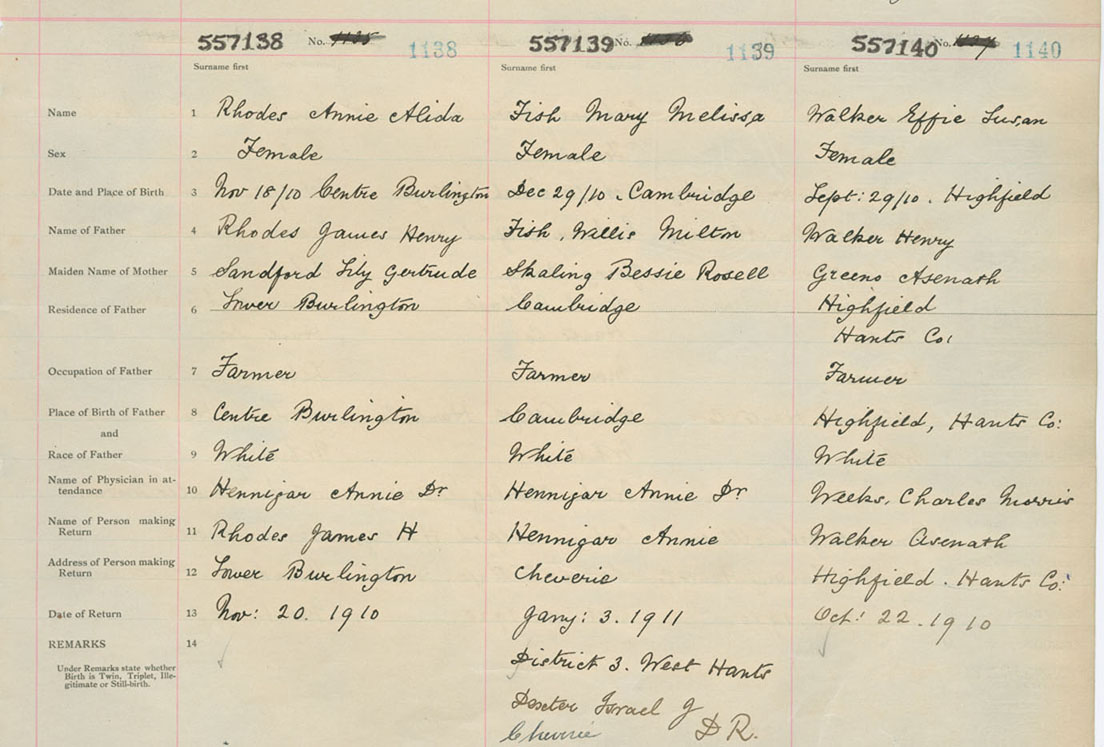 557138 No. 1138 557139 No. 1139 557140 No. 1140
Surname first Surname first Surname first
Name 1 Rhodes Annie Alida Fish Mary Melissa Walker Effie Susan
Sex 2 Female Female Female
Date and Place of Birth 3 Nov 18/10 Centre Burlington Dec 29/10. Cambridge Sept: 29/10. Highfield
Name of Father 4 Rhodes James Henry Fish, Willis Milton Walker Henry
Maiden Name of Mother 5 Sandford Lily Gertrude Skaling Bessie Rosell Greeno Asenath
Residence of Father 6 Lower Burlington Cambridge Highfield
Hants Co:
Occupation of Father 7 Farmer Farmer Farmer
Place of Birth of Father 8 Centre Burlington Cambridge Highfield, Hants Co:
and
Race of Father 9 White White White
Name of Physician in at-
tendance 10 Hennigar Annie Dr Hennigar Annie Dr Weeks, Charles Morris
Name of Person making
Return 11 Rhodes James H Hennigar Annie Walker Asenath
Address of Person making
Return 12 Lower Burlington Cheverie Highfield. Hants Co:
Date of Return 13 Nov: 20. 1910 Jany: 3. 1911 Oct: 22. 1910
REMARKS 14
Under Remarks state whether
Birth is Twin, Triplet, Ille-
gitimate or Still-birth.
District 3. West Hants
Dexter Israel J
Cheverie D R.